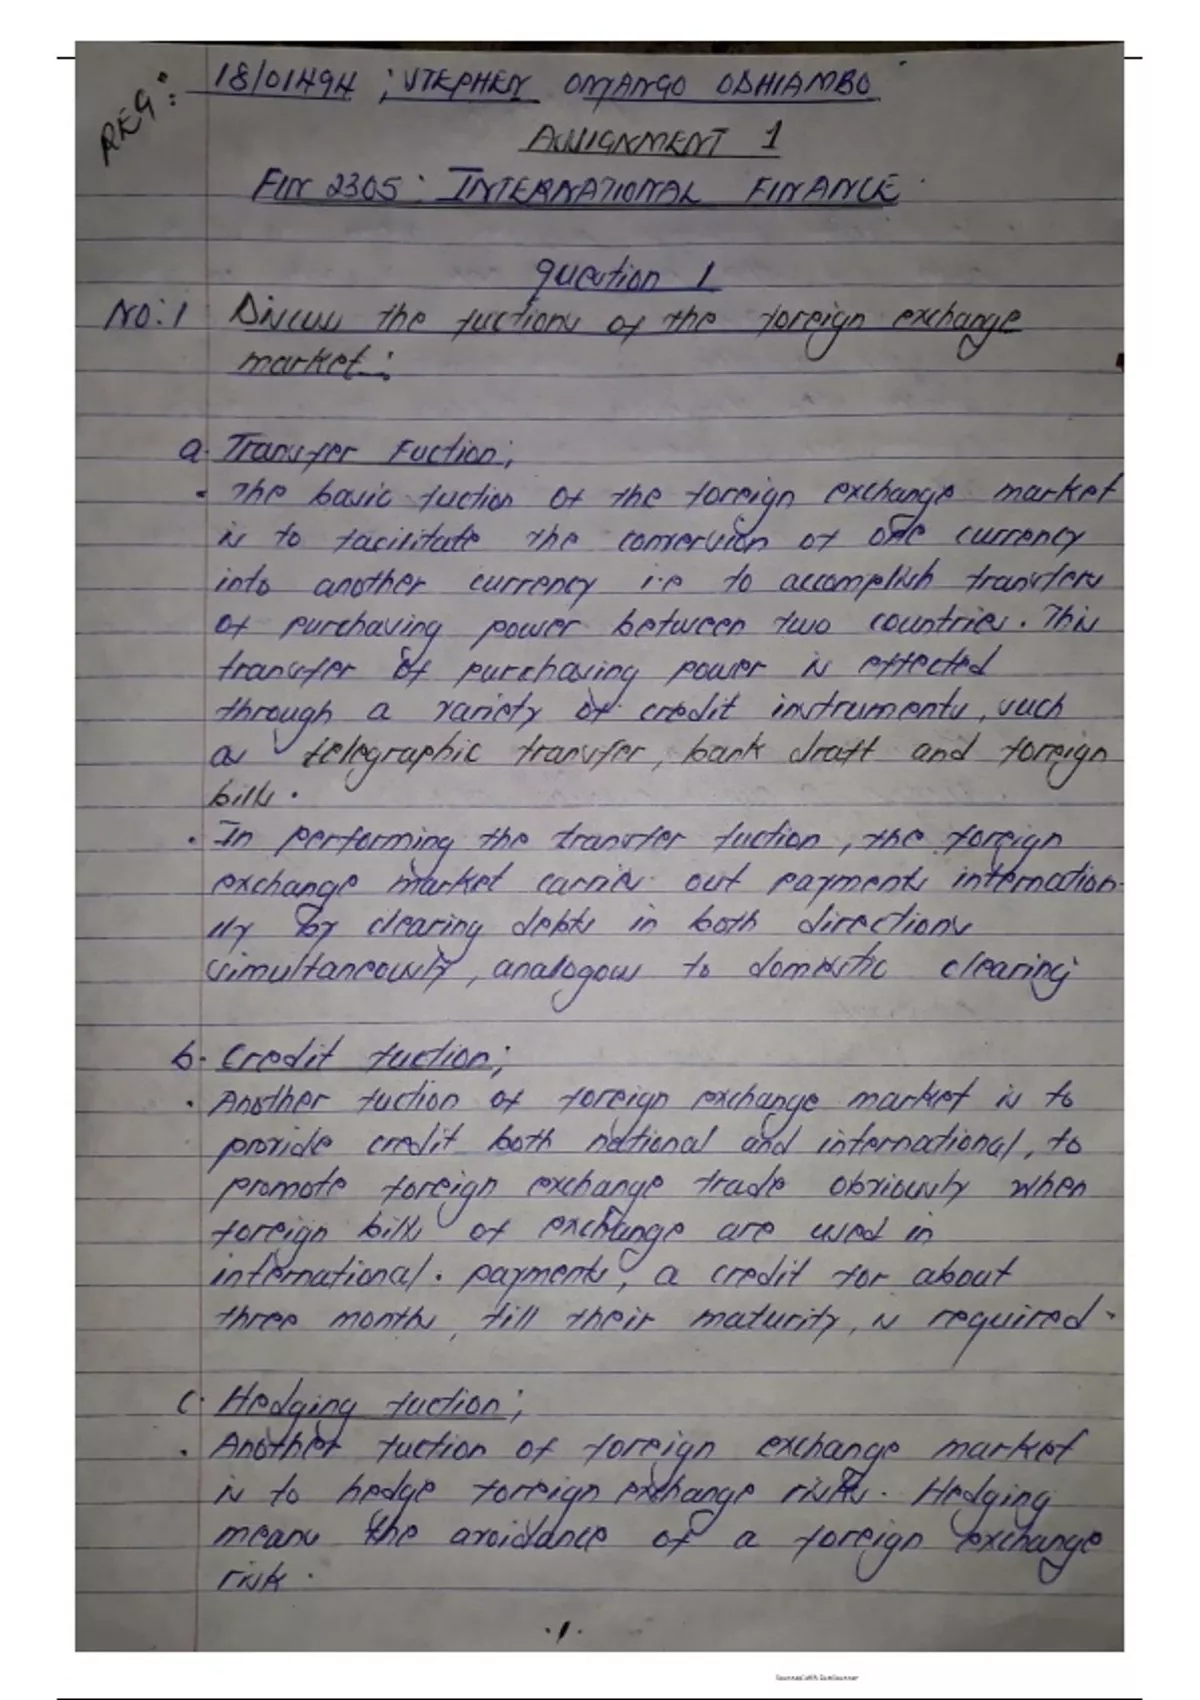 REG: 18/01494 ; STEPHEN ONYANGO ODHIAMBO
ASSIGNMENT 1
FIN 2305: INTERNATIONAL FINANCE.
question 1
NO:1 Discuss the fuctions of the foreign exchange
market:
a. Transfer Fuction;
• The basic fuction of the foreign exchange market
is to facilitate the conversion of one currency
into another currency i.e to accomplish transfers
of purchasing power between two countries. This
transfer of purchasing power is effected
through a variety of credit instruments, such
as telegraphic transfer, bank draft and foreign
bills.
• In performing the transfer fuction, the foreign
exchange market carries out payments internation-
lly by clearing debts in both directions
simultaneously, analogous to domestic clearing
b. Credit fuction;
• Another fuction of foreign exchange market is to
provide credit both national and international, to
promote foreign exchange trade obviously when
foreign bills of exchange are used in
international. payments, a credit for about
three months, till their maturity, is required.
c. Hedging fuction;
• Another fuction of foreign exchange market
is to hedge foreign exchange risks. Hedging
means the avoidance of a foreign exchange
risk.
.1.
Scanned with CamScanner